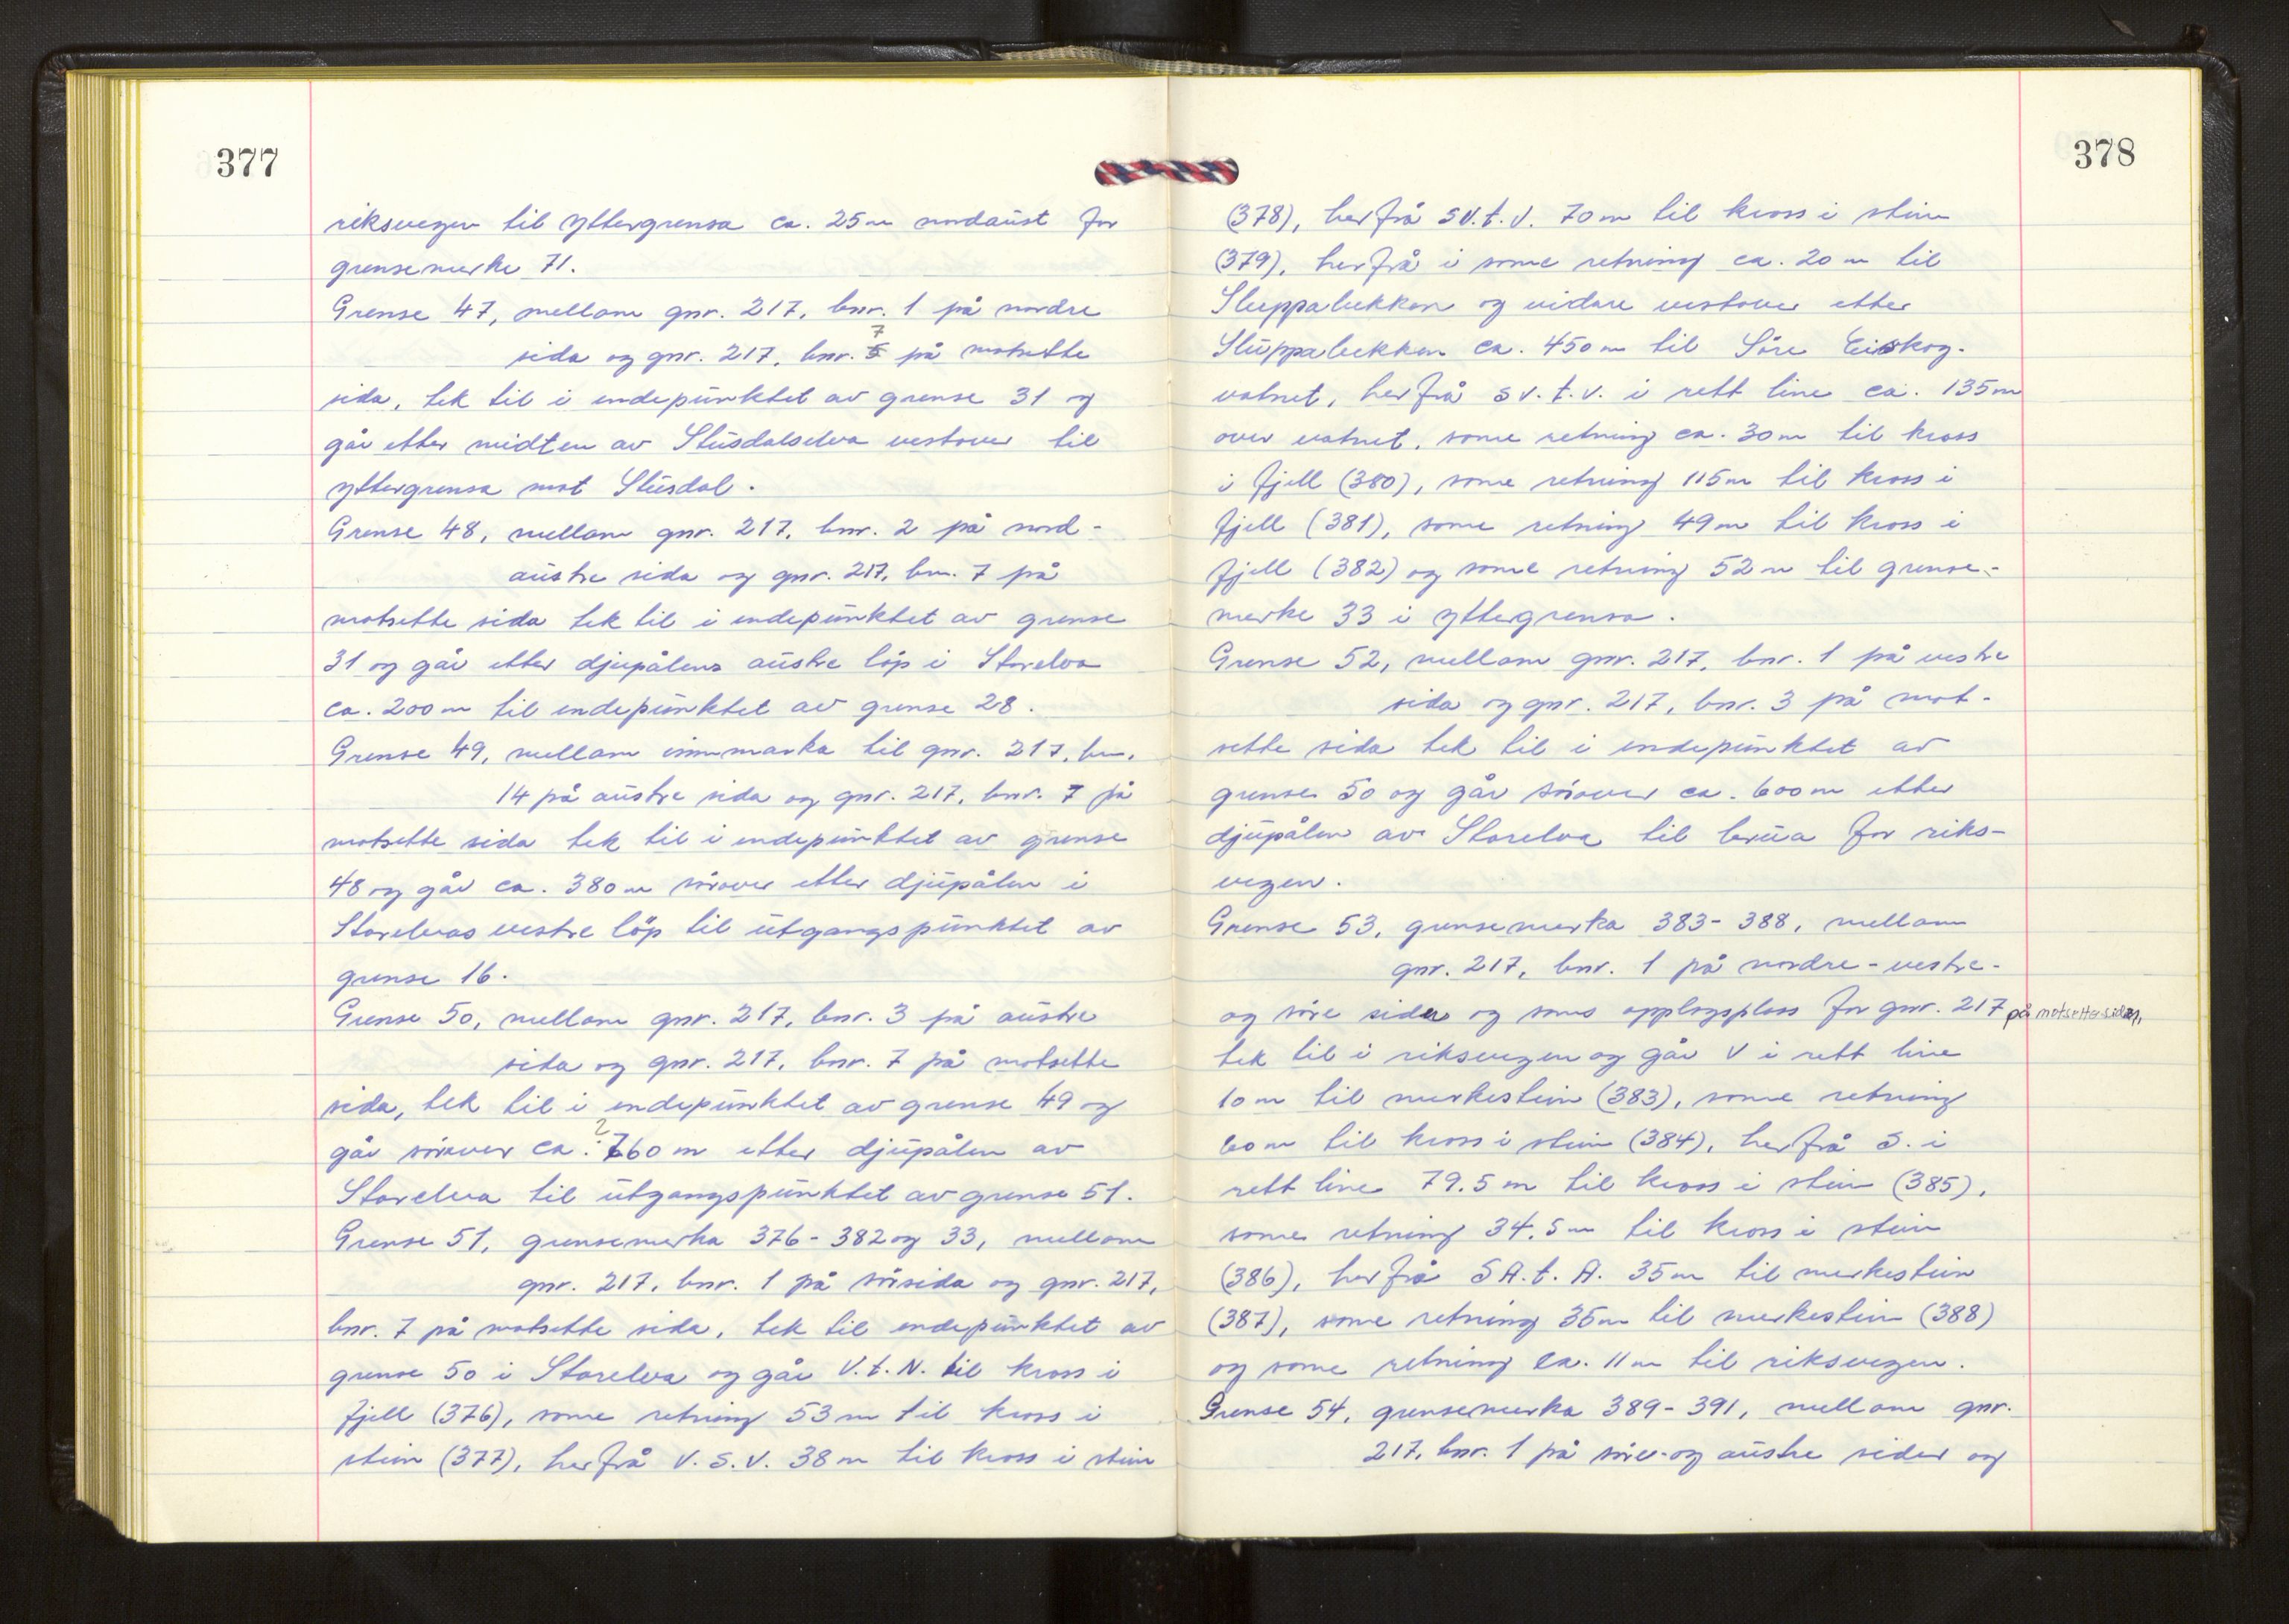 377
riksvegen til yttergrensa ca. 25m nordaust for
grensemerke 71.
Grense 47, mellom gnr. 217, bnr. 1 på nordre
7
sida og gnr. 217, bnr. 5 på motsette
sida, tek til i endepunktet av grense 31 og
går etter midten av Stusdalselva vestover til
yttergrensa mot Stusdal.
Grense 48, mellom gnr. 217, bnr. 2 på nord-
austre sida og gnr. 217, bnr. 7 på
motsette sida tek til i endepunktet av grense
31 og går etter djupålens austre löp i Storelva
ca. 200m til endepunktet av grense 28.
Grense 49, mellom innmarka til gnr. 217, bnr.
14 på austre sida og gnr. 217, bnr. 7 på
motsette sida tek til i endepunktet av grense
48 og går ca. 380m sörover etter djupålen i
Storelvas vestre löp til utgangspunktet av
grense 16.
Grense 50, mellom gnr. 217, bnr. 3 på austre
sida og gnr. 217, bnr. 7 på motsette
sida, tek til i endepunktet av grense 49 og
2
går sörover ca. 760m etter djupålen av
Storelva til utgangspunktet av grense 51.
Grense 51, grensemerka 376-382 og 33, mellom
gnr. 217, bnr. 1 på sörsida og gnr. 217,
bnr. 7 på motsette sida, tek til endepunktet av
grense 50 i Storelva og går V.t.N. til kross i
fjell (376), same retning 53m til kross i
stein (377), herfrå V.S.V. 38m til kross i stein
378
(378), herfrå SV.t.V. 70m til kross i stein
(379), herfrå i same retning ca. 20m til
Sluppabekken og vidare vestover etter
Sluppabekken ca. 450m til Söre Eiskog-
vatnet, herfrå SV.t.V. i rett line ca. 135m
over vatnet, same retning ca. 30m til kross
i fjell (380), same retning 115m til kross i
fjell (381), same retning 49m til kross i
fjell (382) og same retning 52m til grense-
merke 33 i yttergrensa.
Grense 52, mellom gnr. 217, bnr. 1 på vestre
sida og gnr. 217, bnr. 3 på mot-
sette sida tek til i endepunktet av
grense 50 og går sörover ca. 600m etter
djupålen av Storelva til brua for riks-
vegen.
Grense 53, grensemerka 383-388, mellom
gnr. 217, bnr. 1 på nordre-vestre-
og söre sider og sams opplagsplass for gnr. 217 på motsette sider,
tek til i riksvegen og går V i rett line
10m til merkestein (383), same retning
60m til kross i stein (384), herfrå S. i
rett line 79.5m til kross i stein (385),
same retning 34.5m til kross i stein
(386), herfrå SA.t.A. 35m til merkestein
(387), same retning 35m til merkestein (388)
og same retning ca. 11m til riksvegen.
Grense 54, grensemerka 389-391, mellom gnr.
217, bnr. 1 på söre- og austre sider og